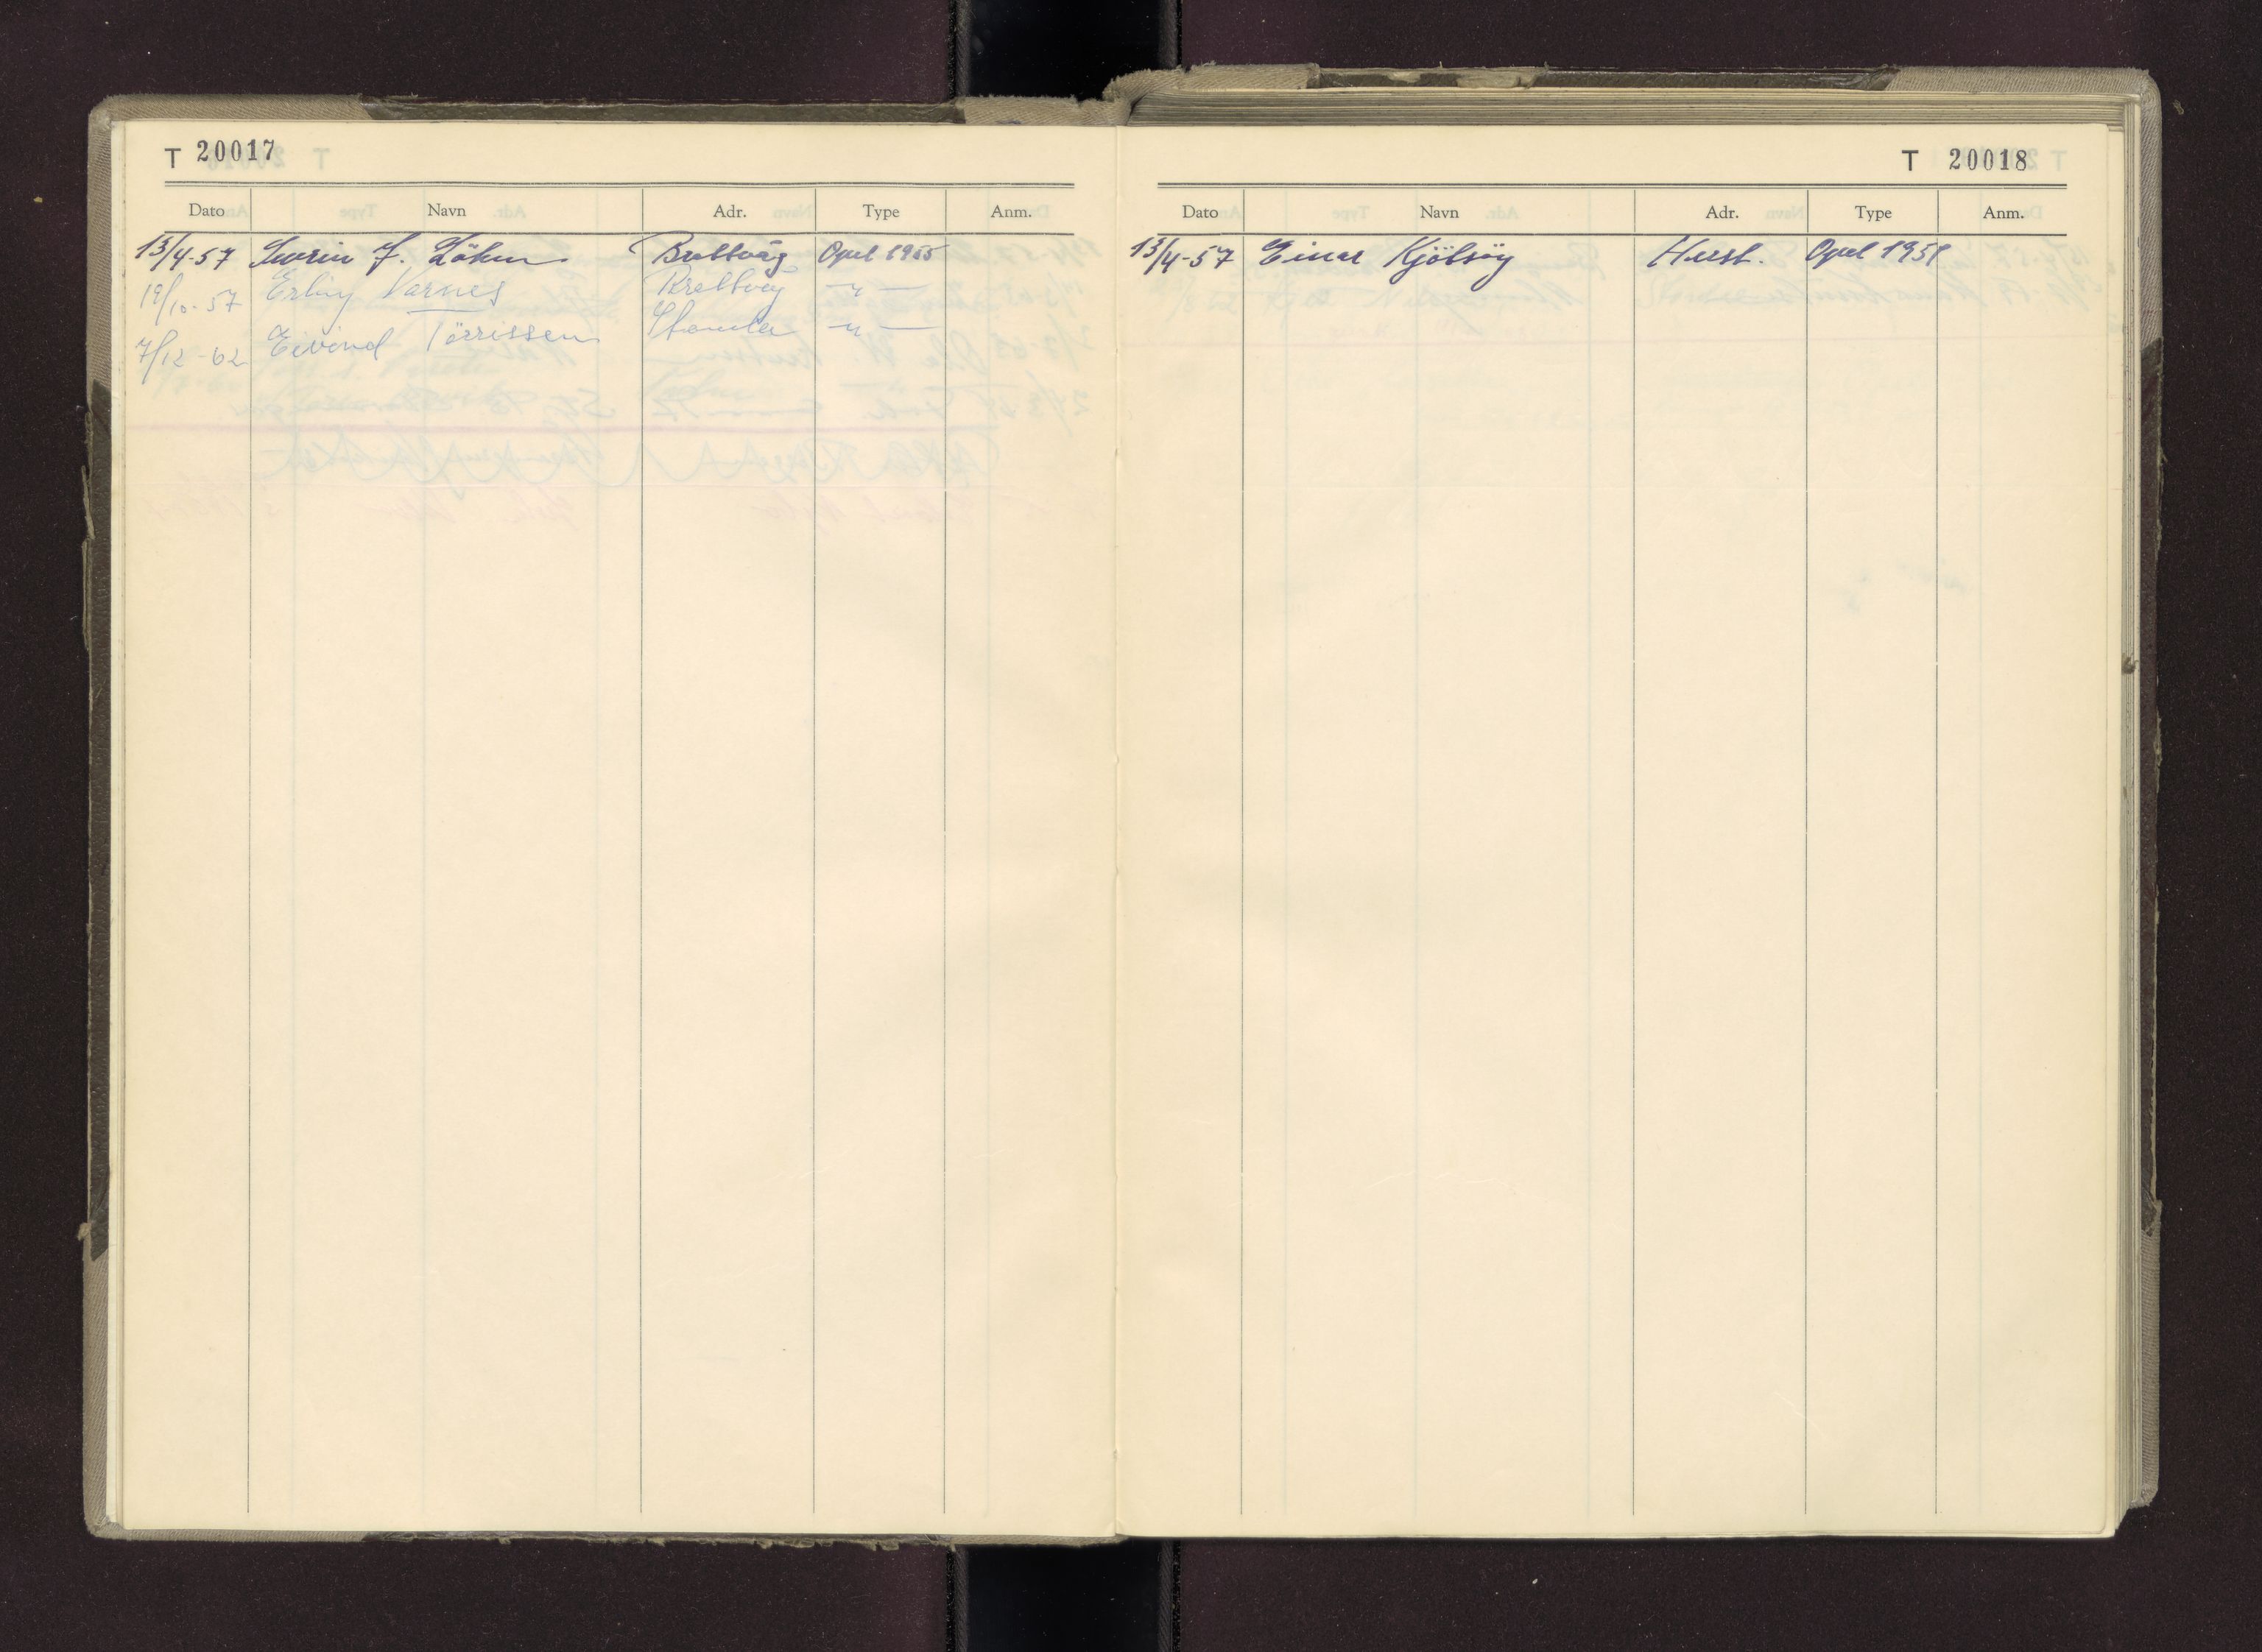 T 20017
Dato Navn Adr. Type Anm.
13/4-57 Severin J. Löken Brattvåg Opel 1955
19/10-57 Erling Varnes Brattvåg -"-
7/12-62 Eivind Törrissen -"-
T 20018
Dato Navn Adr. Type Anm.
13/4-57 Einar Kjölsöy Hust. Opel 1951